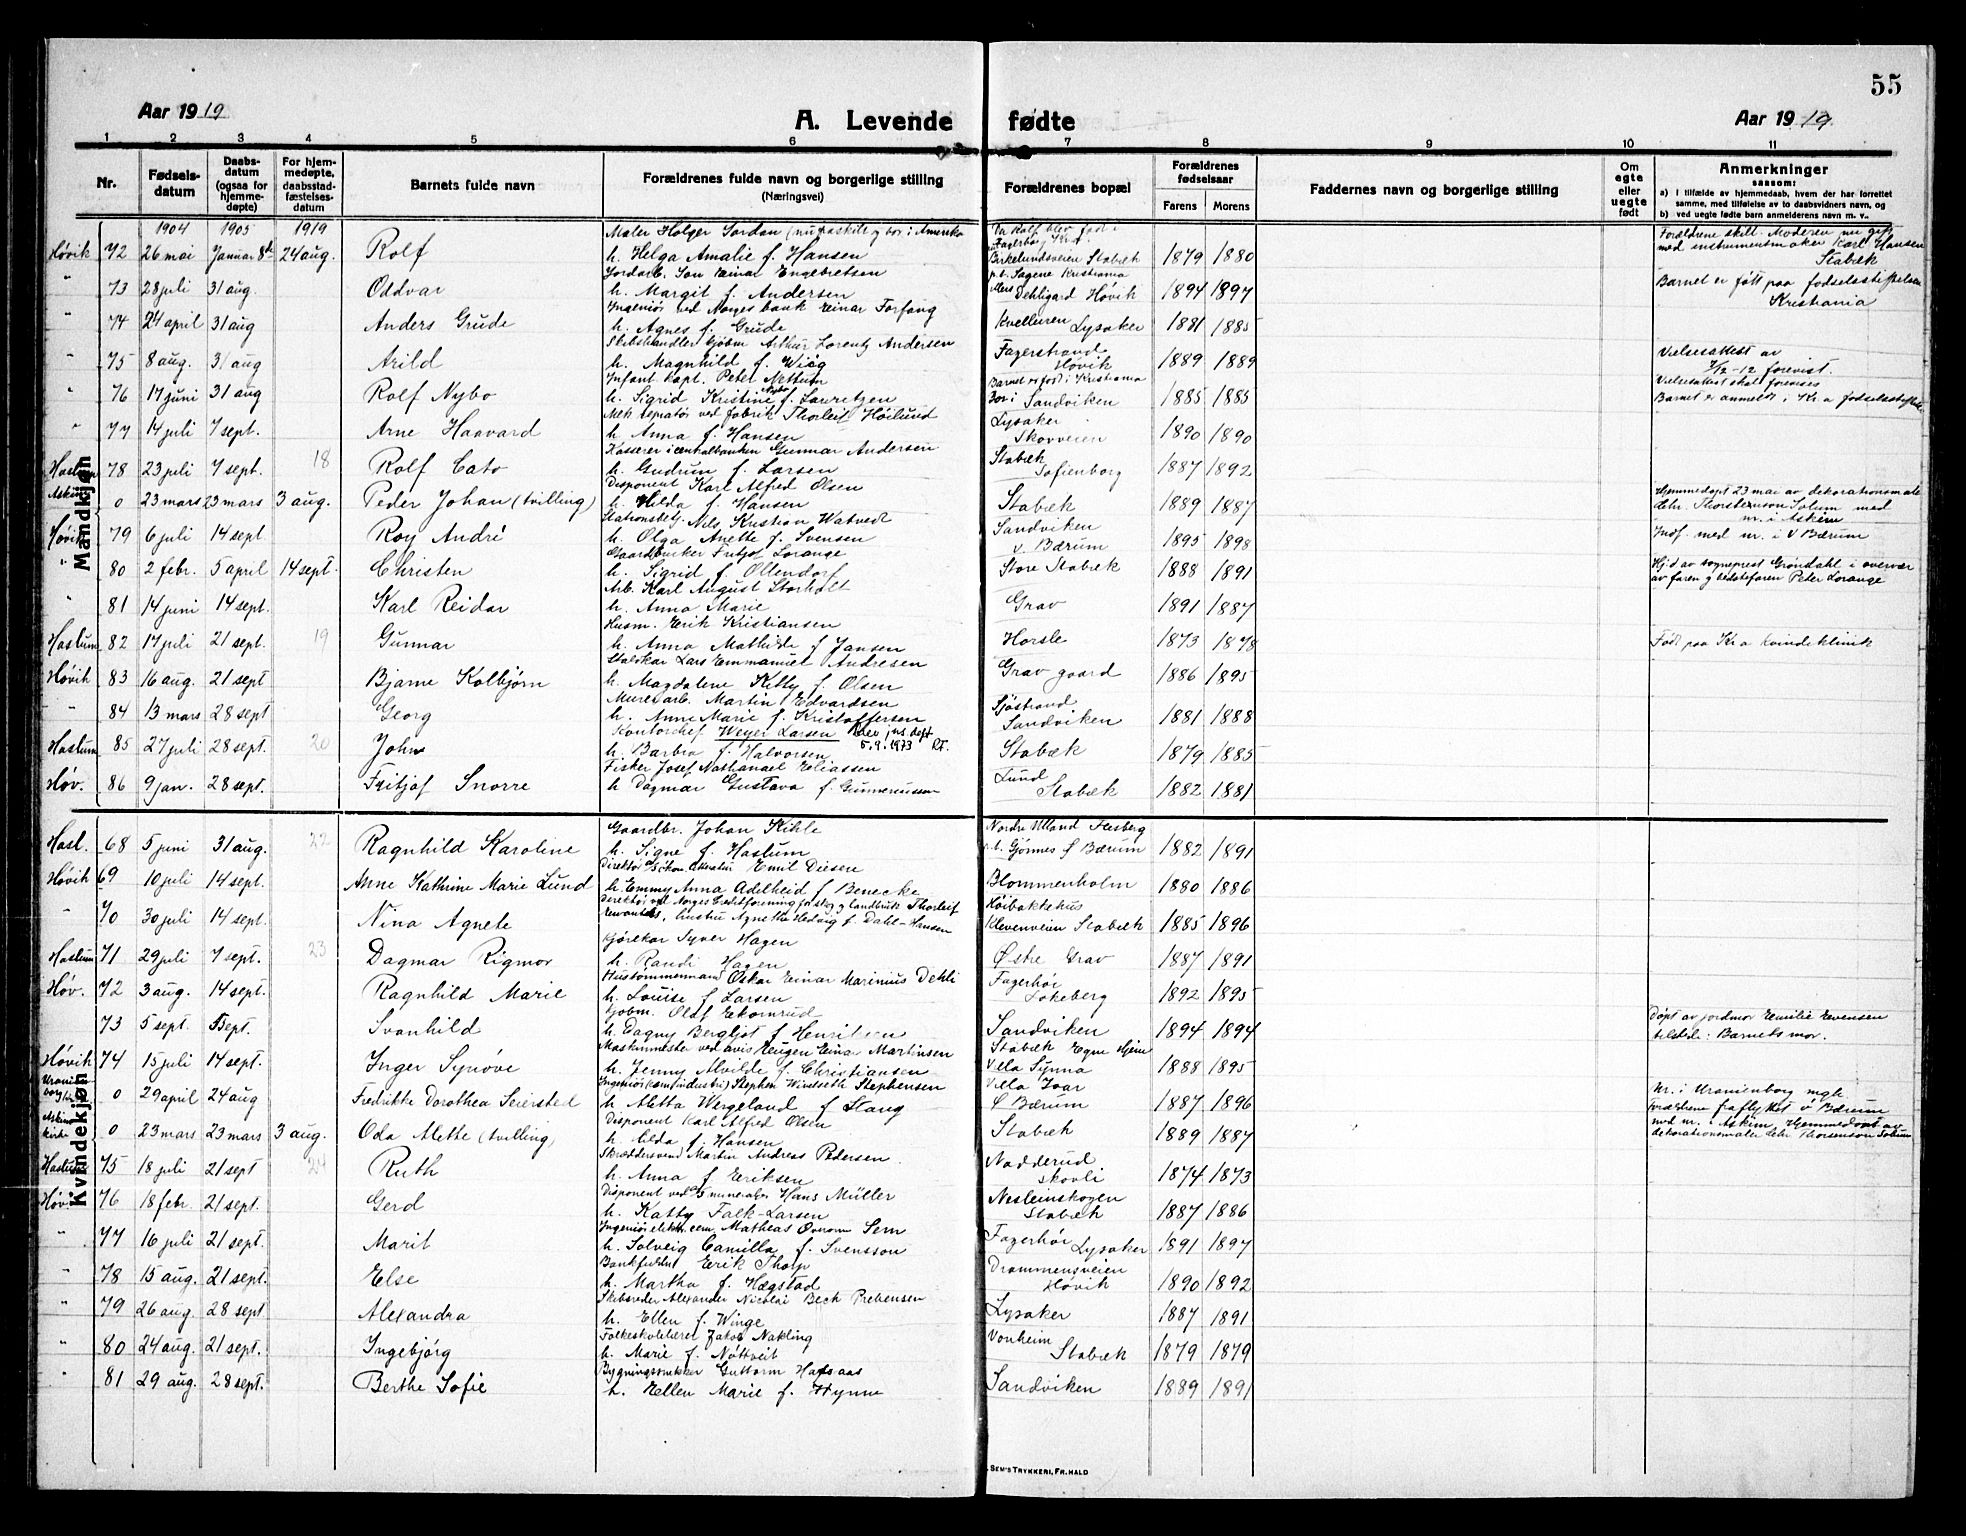 55
Aar 1919
A. Levende fødte
Aar 1919
1 2 3 4 5 6 7 8 9 10 11
Nr.
Fødselsdatum
Daabsdatum (ogsaa for hjemmedøpte)
For hjemmedøpte, daabsstadfæstelsesdatum
Barnets fulde navn
Forældrenes fulde navn og borgerlige stilling
(Næringsvei)
Forældrenes bopæl
Forældrenes fødselsaar
Farens Morens
Faddernes navn og borgerlige stilling
Om egte eller uegte født
Anmerkninger
saasom:
a) I tilfælde av hjemmedaab, hvem der har forrettet
samme, med tilføielse av to daabsvidners navn, og
b) ved uegte fødte barn anmelderens navn m. v..
Mandkjøn
1904 1905 1919
Høvik 72 26 mai Januar 8de 24 aug. Rolf
h. Helga Amalie f. Hansen
Birkelundsveien Stabæk 1879 1880
Forældrene skilt. Moderen nu gift
med instrumentmaker Karl Hansen
Stabæk
" 73 28 juli 31 aug. Oddvar
h. Margit f. Andersen
Dehligard Høvik 1894 1897
Barnet er født paa fødselsstiftelsen
Kristiania
" 74 24 april 31 aug Anders Grude
Ingeniør ved Norges bank Einar Forfang
h. Agnes f. Grude
Lysaker 1881 1885
" 75 8 aug. 31 aug Arild
Arthur Lorentz Andersen
h. Magnhild f. Wiig
Fagerstrand
Høvik 1889 1889
Vielsesattest av
7/12-12 forevist.
" 76 17 juni 31 aug Rolf Nybo
Infant. kapt. Peter Nettum
h. Sigrid Kristine Nybo f. Lauritzen
Barnet er født i Kristiania
Bor i Sandviken 1885 1885
Vielsesattest skal forevises
" 77 14 juli 7 sept. Arne Haavard
Mek. reparatør ved fabrik Thorleif Höilund
h. Anna f. Hansen
Lysaker
Skovveien 1890 1890
Haslum 78 23 juli 7 sept. 18 Rolf Cato
Kasserer i centralbanken Gunnar Andersen
h. Gudrun f. Larsen
Stabæk
Sofienborg 1887 1892
Askim 0 23 mars 23 mars 3 aug. Peder Johan (tvilling)
Disponent Karl Alfred Olsen
h. Hilda f. Hansen
Stabæk 1889 1887
Hjemmedøpt 23 mai av dekorationsmaler
Chr. Thorstensson Solum med
nr. i Askim
Høvik 79 6 juli 14 sept. Roy André
Stationsbetj. Nils Kristian Watvedt
h. Olga Anette f. Svensen
Sandviken
v. Bærum 1895 1898
Indf. med nr. i V Bærum
" 80 2 febr. 5 april 14 sept. Christen
Gaardbruker Fritjof Lorange
h. Sigrid f. Ollendorf
Store Stabæk 1888 1891
Hj.d av sogneprest Grøndahl i overvær
av faren og bedstefaren Peter Lorange
" 81 14 juni 14 sept. Karl Reidar
Arb. Karl August Storholt
h. Anna Marie
Grav 1891 1887
Haslum 82 17 juli 21 sept. 19 Gunnar
Husm. Erik Kristiansen
h. Anna Mathilde f Jansen
Horsle 1873 1878
Født paa Kr.a kvindeklinik
Høvik 83 16 aug. 21 sept Bjarne Kolbjørn
Lars Emmanuel Andresen
h. Magdalene Kitty f. Olsen
Grav gaard 1886 1895
" 84 13 mars 28 sept Georg
Murerarb. Martin Edvardsen
h. Anne Marie f. Kristoffersen
Sjöstrand
Sandviken 1881 1888
Haslum 85 27 juli 28 sept. 20 John
Kontorchef Weyer Larsen
5.9.1973
h. Barbra f. Halvorsen
Stabæk 1879 1885
Høv. 86 9 jan. 28 sept. Fritjof Snorre
Fisker Josef Nathanael Eliassen
h Dagmar Gustava f. Gunneriussen
Lund
Stabæk 1882 1881
Kvindekjøn
Hasl. 68 5 juni 31 aug. 22 Ragnhild Karoline
Gaardbr. Johan Kihle
h. Signe f. Haslum
Nordre Ulland Flesberg
p.t. Gjønnes Ø Bærum 1882 1891
Høvik 69 10 juli 14 sept. Anne Kathrine Marie Lund
Emil Diesen
h. Emmy Anna Adelheid f Benecke
Blommenholm 1880 1886
" 70 30 juli 14 sept. Nina Agnete
hustru Agnethe Hedvig f. Dahl-Hansen
Høibakkehus
Klevenveien Stabæk 1885 1896
Haslum 71 29 juli 7 sept. 23 Dagmar Rigmor
Kjørekar Syver Hagen
h. Randi Hagen
Østre Grav 1887 1891
Høv. 72 3 aug. 14 sept. Ragnhild Marie
Hustømmermand Oskar Einar Marinius Dehli
h. Louise f Larsen
Fagerhøi
Løkeberg 1892 1895
73 5 sept. 5 sept. Svanhild
Kjøbm. Olaf Ekornrud
h. Dagny Bergljot f Henriksen
Sandviken 1894 1894
Døpt av jordmor Emilie Evensen
tilstede: Barnets mor.
Høvik 74 15 juli 14 sept. Inger Synøve
Maskinmester ved avis Eugen Einar Martinsen
h. Jenny Alvilde f Christiansen
Stabæk Egne Hjem
Villa Synna 1888 1895
Uranienborg 0 29 april 24 aug Fredrikke Dorothea Seiersted
Stephen Windseth Stephensen
h Aletta Wergeland f Stang
Villa Ivar
Ø Bærum 1887 1896
Nr. i Uranienborg mgh
Forældrene fraflyttet Ø Bærum
Askim kirke 0 23 mars 23 mars 3 aug. Oda Alette (tvilling)
Disponent Karl Alfred Olsen
h. Hilda f. Hansen
Stabæk 1889 1887
med nr. i Askim, Hjemmedøpt av
dekorationsmaler Chr Thorsenson Solum
Haslum 75 18 juli 21 sept 24 Ruth
Skræddersvend Martin Andreas Pedersen
h. Anna f Eriksen
Nadderud
Skovli 1874 1873
Høvik 76 18 febr. 21 sept. Gerd
Hans Müller
h. Katty Falk-Larsen
Nesleinskogen
Stabæk 1887 1886
" 77 16 juli 21 sept. Marit
Sem
h. Solveig Camilla f. Svensson
Fagerhøi Lysaker 1891 1897
" 78 15 aug. 21 sept. Else
Erik Thorp
h. Martha f. Hægstad
Drammensveien
Høvik 1890 1892
" 79 26 aug. 28 sept Alexandra
Skibsreder Alexander Nicolai Bech Prebensen
h. Ellen f. Winge
Lysaker 1887 1891
" 80 24 aug. 21 sept. Ingebjørg
Folkeskolelærer Jakob Nakling
h. Marie f. Nöttveit
Vonheim
Stabæk 1879 1879
" 81 29 aug. 28 sept. Berthe Sofie
Guttorm
h. Ellen Marie f. Hynne
Sandviken 1889 1891
SEM'S TRYKKERI, FR.HALD